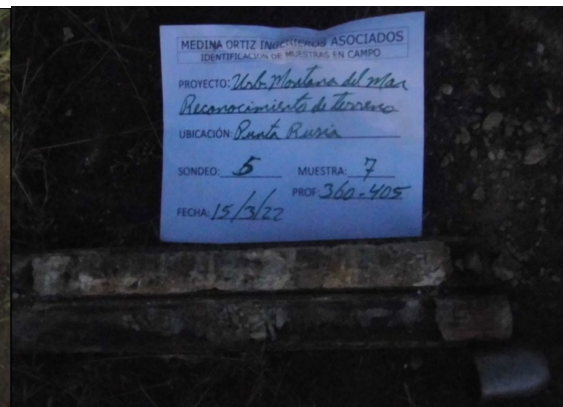 MEDINA ORTIZ INGENIEROS ASOCIADOS
IDENTIFICACION DE MUESTRAS EN CAMPO
PROYECTO: Urb. Montana del Mar
Reconocimiento de terreno
UBICACIÓN: Punta Rusia
SONDEO: 5 MUESTRA: 7
PROF: 360-405
FECHA: 15/3/22